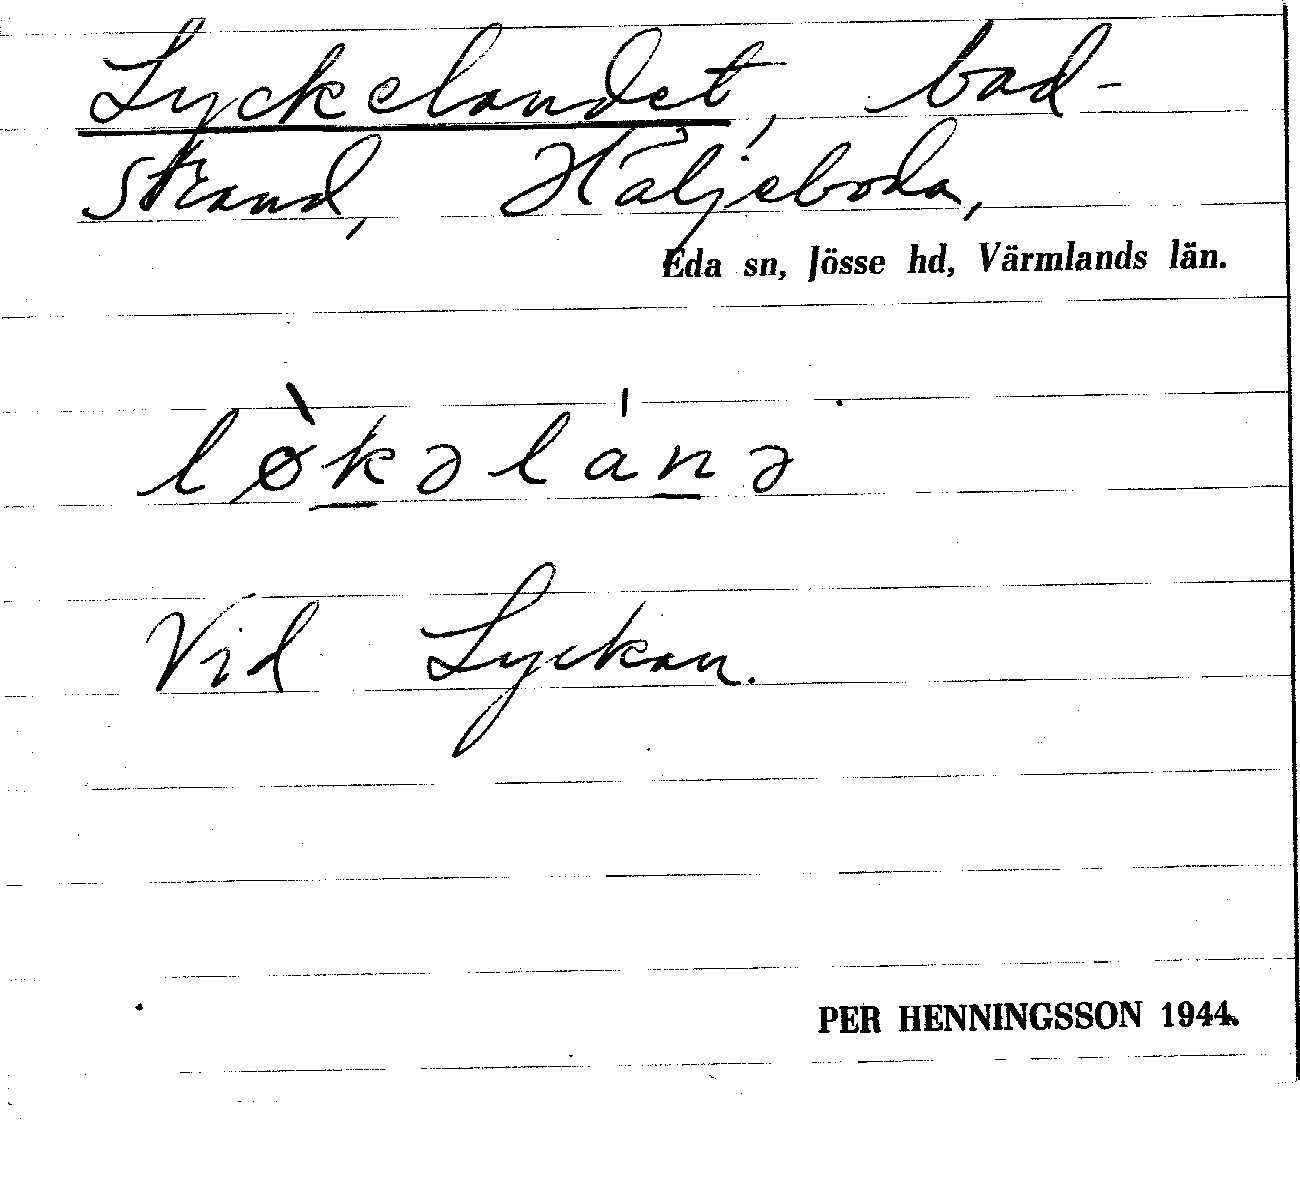 Lyckelandet, bad-
strand, Häljeboda,
Eda sn, Jösse hd, Värmlands län.
lø̀kəlánə
Vid Lyckan.
PER HENNINGSSON 1944.